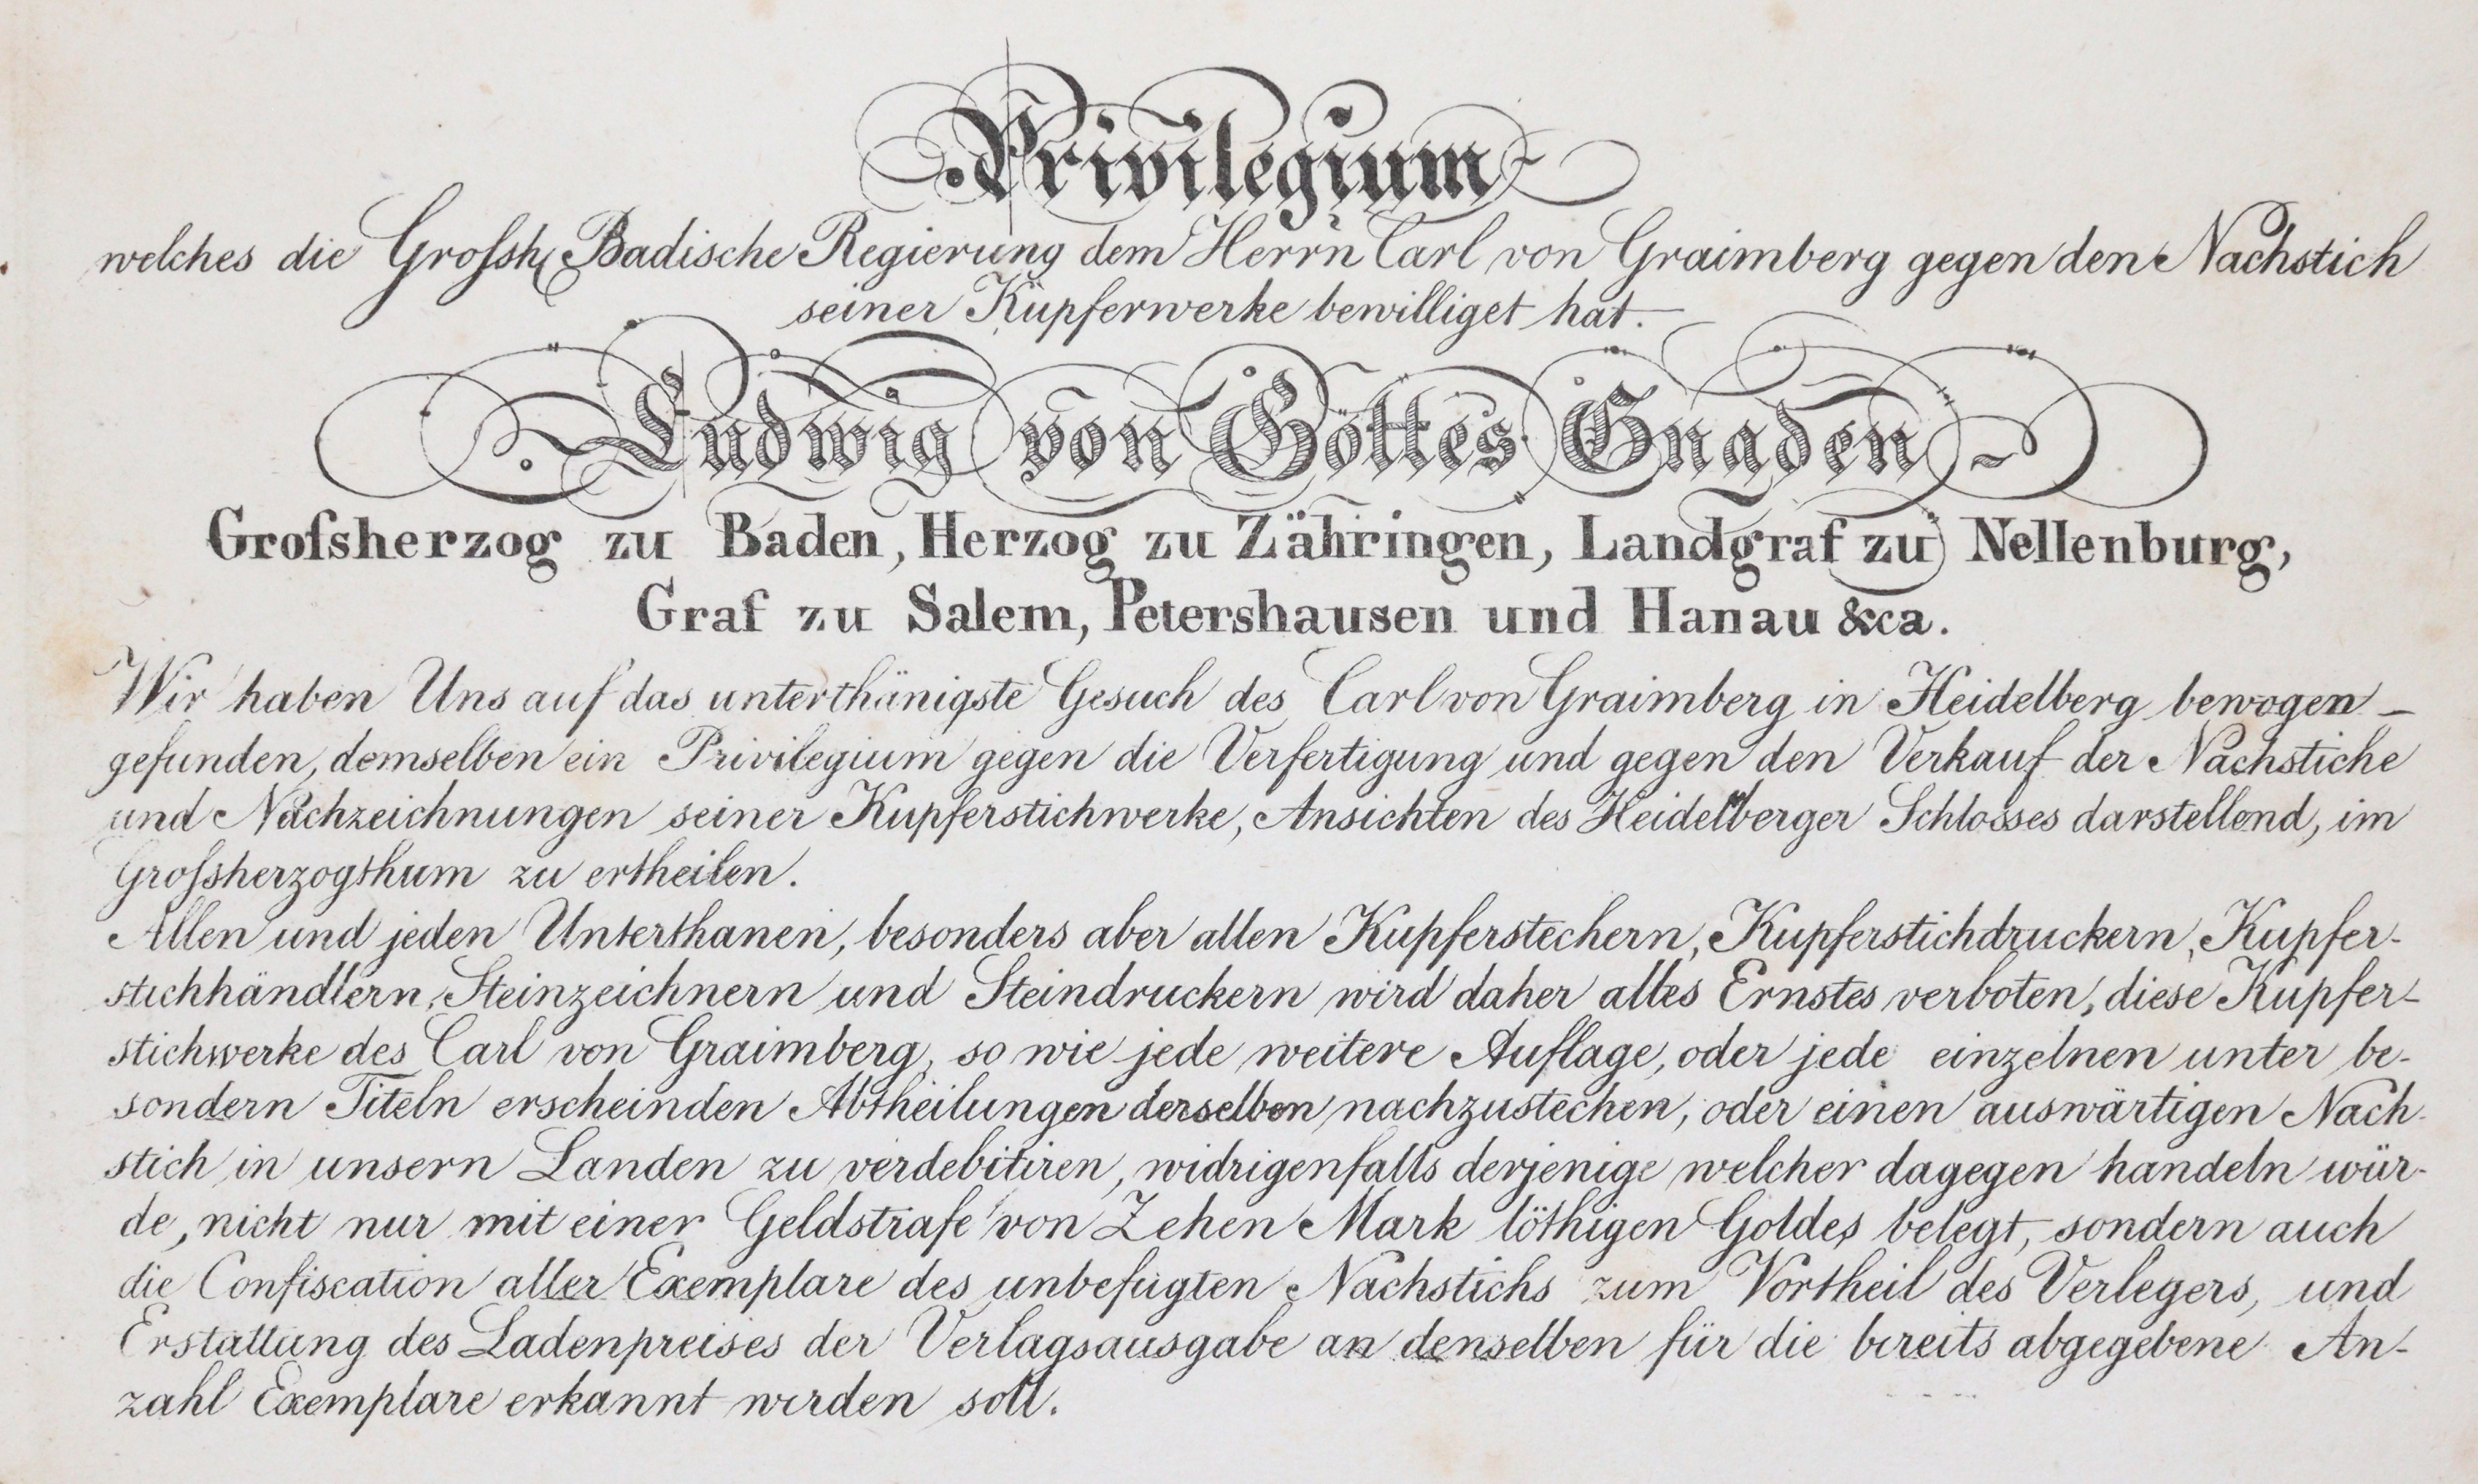 Privilegium
welches die Großh. Badische Regierung dem Herrn Carl von Graimberg gegen den Nachstich
seiner Kupferwerke bewilliget hat.
Ludwig von Gottes Gnaden
Groſsherzog zu Baden, Herzog zu Zähringen, Landgraf zu Nellenburg,
Graf zu Salem, Petershausen und Hanau &ca.
Wir haben Uns auf das unterthänigste Gesuch des Carl von Graimberg in Heidelberg bewogen
gefunden, demselben ein Privilegium gegen die Verfertigung und gegen den Verkauf der Nachstiche
und Nachzeichnungen seiner Kupferstichwerke, Ansichten des Heidelberger Schlosses darstellend, im
Groſsherzogthum zu ertheilen.
Allen und jeden Unterthanen, besonders aber allen Kupferstechern, Kupferstichdruckern, Kupfer-
stichhändlern, Steinzeichnern und Steindruckern wird daher alles Ernstes verboten, diese Kupfer-
stichwerke des Carl von Graimberg, so wie jede weitere Auflage, oder jede einzelnen unter be-
sondern Titeln erscheinden Abtheilungen derselben nachzustechen, oder einen auswärtigen Nach-
stich in unsern Landen zu verdebitiren, widrigenfalls derjenige welcher dagegen handeln wür-
de, nicht nur mit einer Geldstrafe von Zehen Mark löthigen Goldes belegt, sondern auch
die Confiscation aller Exemplare des unbefugten Nachstichs zum Vortheil des Verlegers, und
Erstattung des Ladenpreises der Verlagsausgabe an denselben für die bereits abgegebene An-
zahl Exemplare erkannt werden soll.